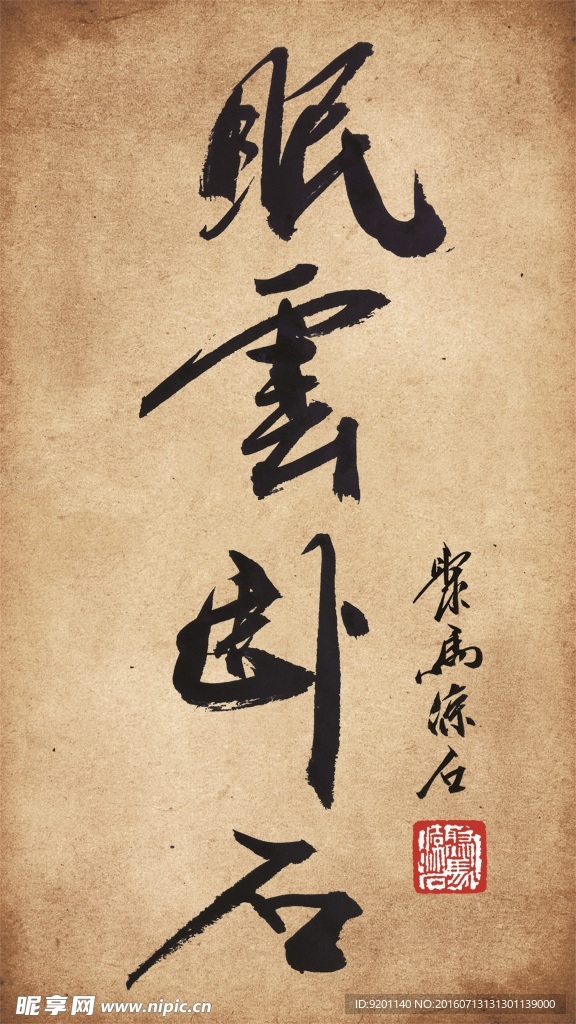 眠雲卧石
聚馬涼石
昵享网 www.nipic.cn
ID:9201140 NO:20160713131301139000